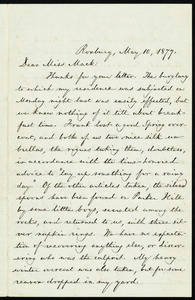 Roxbury, May 10, 1877.
Dear Miss Mack:
Thanks for your letter. The burglary
to which my residence was subjected on
Monday night last was easily effected, but
we knew nothing of it till about break-
fast time. Frank lost a good spring over-
coat, and both of us two nice silk um-
brellas, the rogues taking them, doubtless,
in accordance with the time-honored
advice to "lay up something for a rainy
day." Of the other articles taken, the silver
spoons have been found on Parker Hill
by some little boys, secreted among the
rocks, and returned to us, with three sil-
ver napkin rings. We have no expecta-
tion of recovering anything else, or discov-
ering who was the culprit. My heavy
winter overcoat was also taken, but for some
reason dropped in my yard.